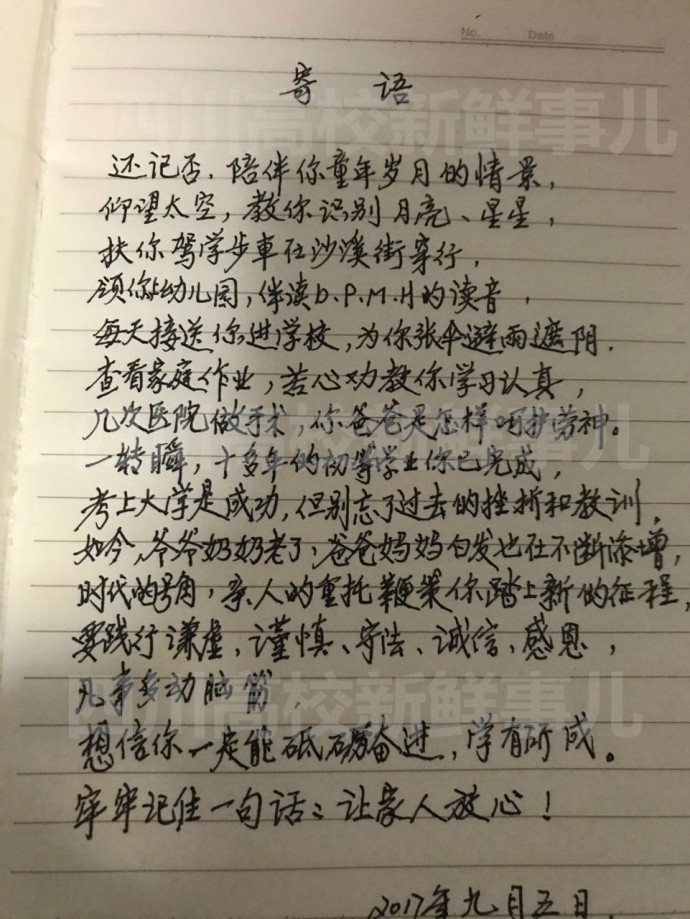 No. Date
寄 语
还记否,陪伴你童年岁月的情景,
仰望太空,教你识别月亮、星星,
扶你驾学步車在沙溪街穿行,
领你上幼儿园,伴读b.P.M.H的读音,
每天接送你进学校,为你张伞避雨遮阴.
查看家庭作业,苦心功教你学习认真,
几次医院做手术,你爸爸是怎样呵护劳神。
一转瞬,十多年的初等学业你已完成,
考上大学是成功,但别忘了过去的挫折和教训,
如今,爷爷奶奶老了,爸爸妈妈白发也在不断添增,
时代的号角,亲人的重托鞭策你踏上新的征程,
要践行谦虚,谨慎、守法、诚信、感恩,
凡事多动脑筋,
想信你一定能砥砺奋进,学有所成。
牢牢记住一句话:让家人放心!
2017年九月五日
四川高校新鲜事儿
四川高校新鲜事儿